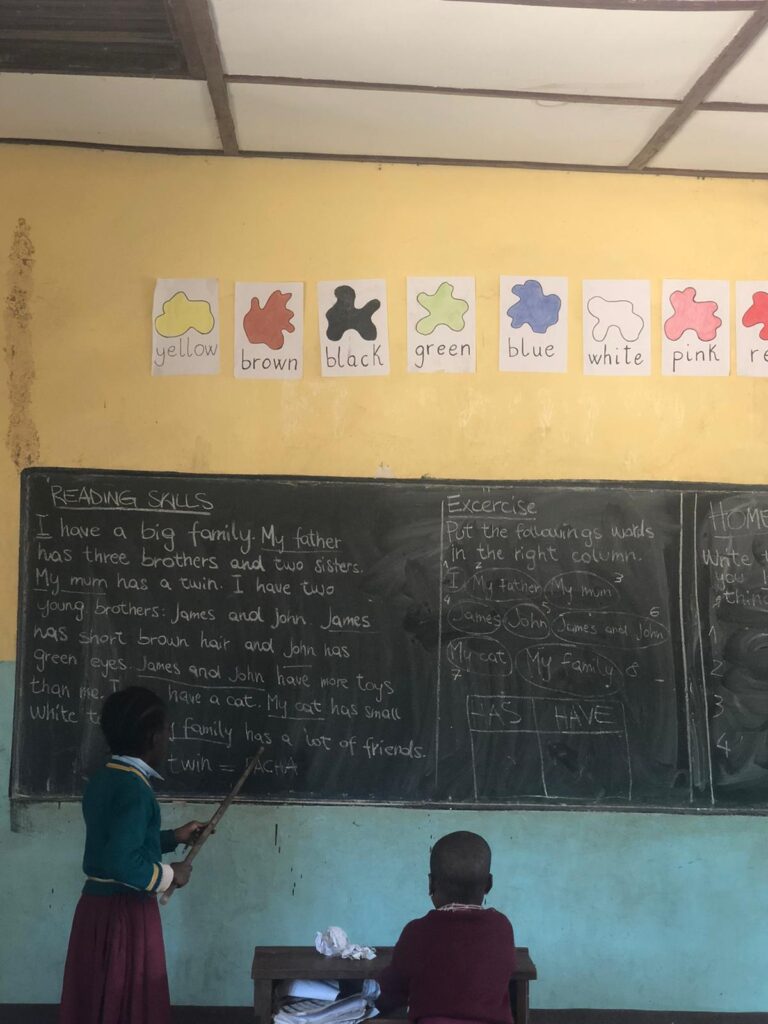 yellow
brown
black
green
blue
white
pink
re
READING SKILLS
I have a big family. My father
has three brothers and two sisters.
My mum has a twin. I have two
young brothers: James and John. James
has short brown hair and John has
green eyes. James and John have more toys
than me. I have a cat. My cat has small
white family has a lot of friends.
twin =
Excercise
Put the followings words
in the right column.
1 I 2 My father My mum 3
4 James John 5 James and John 6
My cat 7 My family 8
HAS HAVE
HOME
Write
you
thin
1
2
3
4